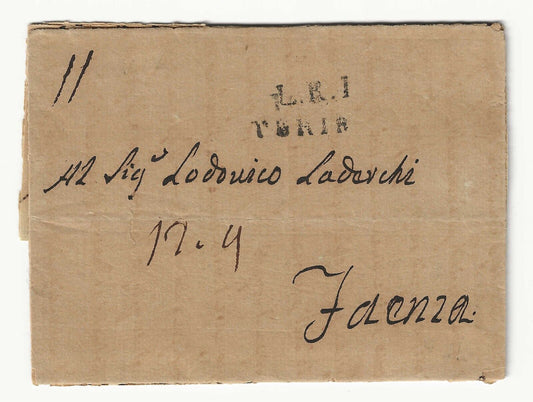 11
L. R. 1
Al Sig.r Lodovico Laderchi
12. 4
Faenza.